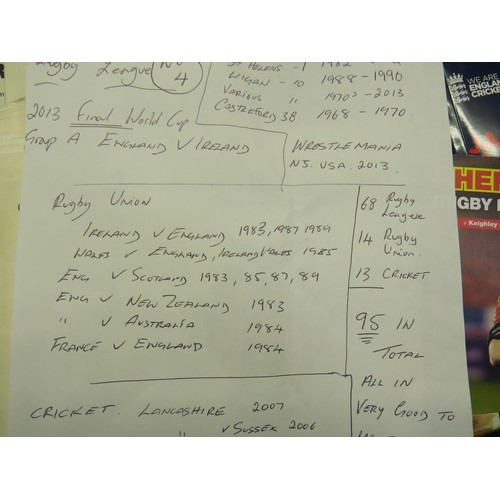 Rugby League No 4
St Helens - 1 1982
Wigan - 10 1988 - 1990
Various " 1970s - 2013
Castleford 38 1968 - 1970.
2013 Final World Cup
Group A England v Ireland
Wrestlemania
NJ. USA. 2013.
Rugby Union
Ireland v England 1983, 1987 1989
Wales v England, Ireland v Wales 1985
Eng v Scotland 1983, 85, 87, 89
Eng v New Zealand 1983
" v Australia 1984
France v England 1984
68 Rugby
League
14 Rugby
Union.
13 Cricket
95 in
Total
All in
Very Good to
Cricket. Lancashire 2007
" v Sussex 2006
WE ARE
ENGLAND
CRICKET
HE
RUGBY
v Keighley